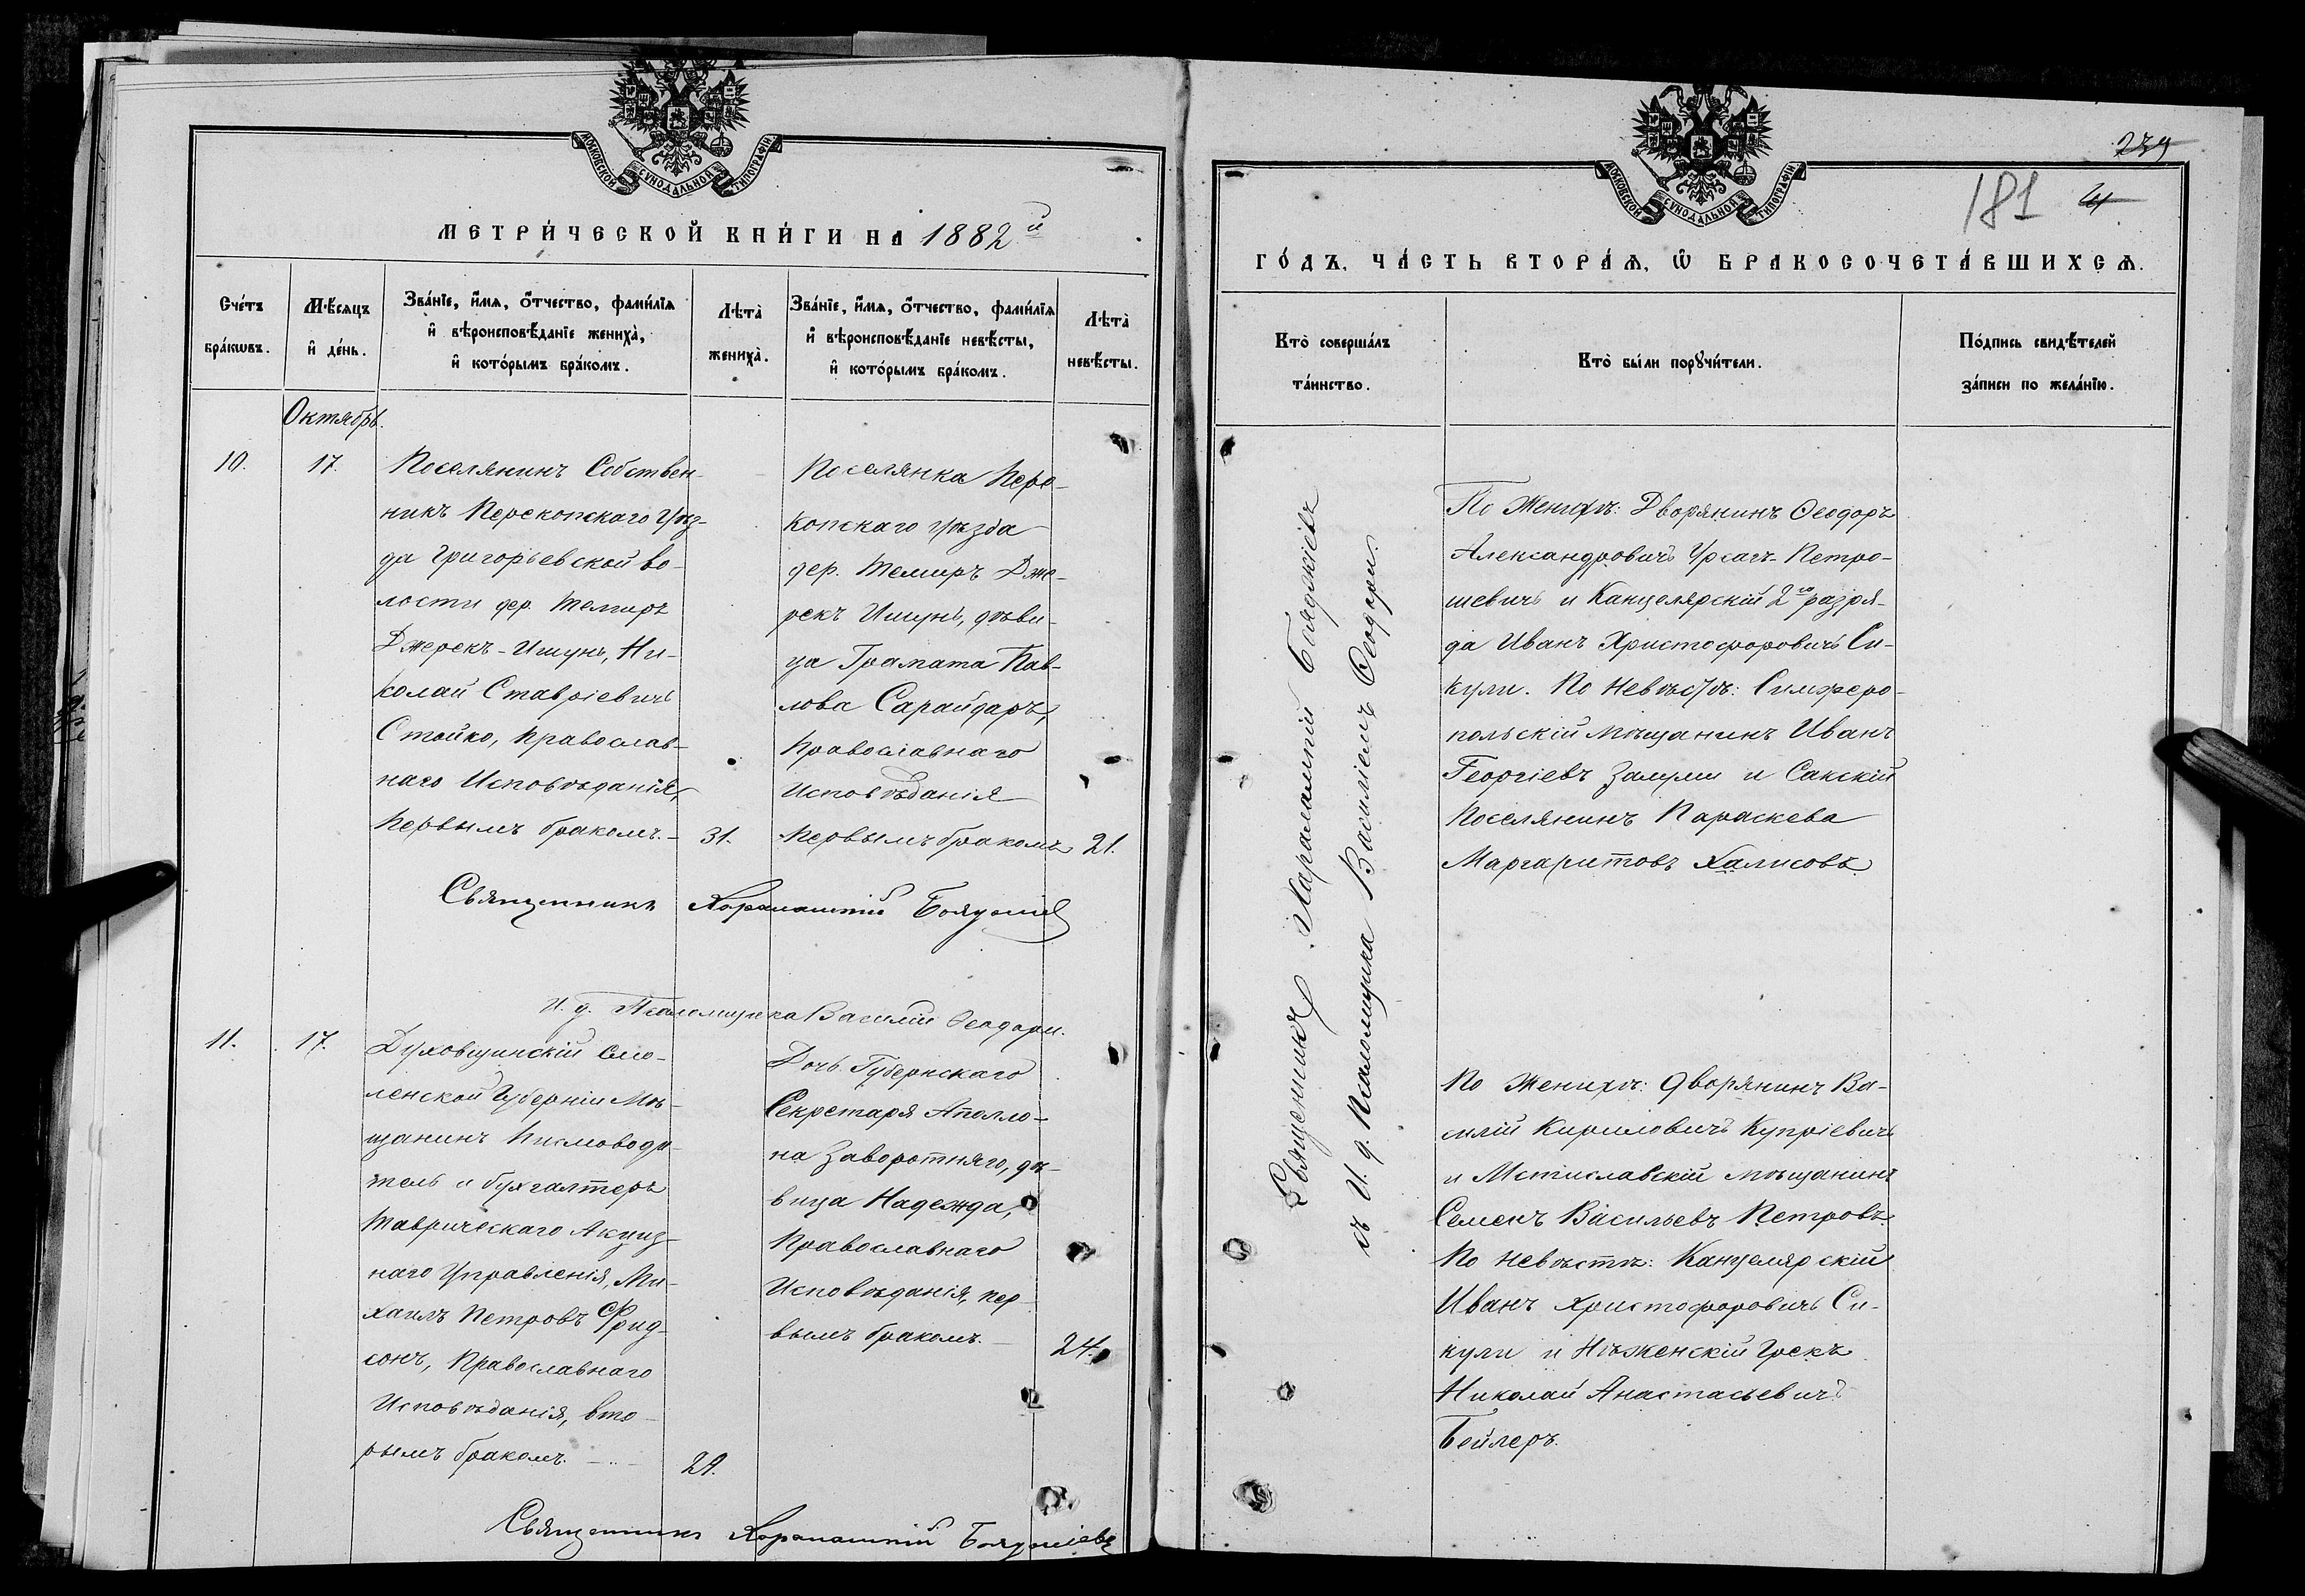 МОСКОВСКОЙ СѴНОДАЛЬНОЙ ТИПОГРАФІИ
МЕТРИ́ЧЕСКОЙ КНИ́ГИ НА 1882й
Сче́тъ бра́кѡвъ.
Мѣ́сяцъ и де́нь.
Зва́нїе, и́мѧ, ѻ҆́тчество, фами́лїѧ
и҆ вѣроисповѣ́данїе жениха̀,
и҆ кото́рымъ бра́комъ.
Лѣта̀ жениха̀.
Зва́нїе, и́мѧ, ѻ҆́тчество, фами́лїѧ
и҆ вѣроисповѣ́данїе невѣ́сты,
и҆ кото́рымъ бра́комъ.
Лѣта̀ невѣ́сты.
Октябрь.
10.
17.
Поселянинъ Собствен-
никъ Перекопскаго Уѣз-
да Григорьевской во-
лости дер. Темиръ
Джерекъ-Ишунь, Ни-
колай Ставріевичъ
Стойко, Православ-
наго Исповѣданія,
первымъ бракомъ.
31.
Поселянка Пере-
копскаго уѣзда
дер. Темиръ Дже-
рекъ Ишунь, дѣви-
ца Грамата Пав-
лова Сарайдаръ,
Православнаго
Исповѣданія
первымъ бракомъ
21.
Священникъ Харалампій
И. д. Псаломщика Василій Ѳеодори.
11.
17.
Духовщинскій Смо-
ленской Губерніи Мѣ-
щанинъ Писмоводи-
тель и бухгалтеръ
Таврическаго Акциз-
наго Управленія, Ми-
хаилъ Петровъ Фрид-
сонъ, Православнаго
Исповѣданія, вто-
рымъ бракомъ.
29.
Дочь Губернскаго
Секретаря Аполло-
на Заворотняго, дѣ-
вица Надежда,
Православнаго
Исповѣданія, пер-
вымъ бракомъ.
24.
Священникъ Харалампій
МОСКОВСКОЙ СѴНОДАЛЬНОЙ ТИПОГРАФІИ
239
181
ГО́ДЪ, ЧА́СТЬ ВТОРА́Ѧ, Ѡ҆ БРАКОСОЧЕТА́ВШИХСѦ.
Кто̀ соверша́лъ та́инство.
Кто̀ бы́ли порꙋчи́тели.
По́дпись свидѣ́телей за́писи по жела́нїю.
Священникъ Харалампій
съ И. д. Псаломщика Василіемъ Ѳеодори.
По Женихѣ: Дворянинъ Ѳеодоръ
Александровичъ Урсатъ-Петро-
шевичъ и Канцелярскій 2го разря-
да Иванъ Христофоровичъ Си-
кули. По Невѣстѣ: Симферо-
польскій мѣщанинъ Иванъ
Георгіевъ и Сакскій
Поселянинъ Параскева
Маргаритовъ Халисовъ.
По Женихѣ: дворянинъ Ва-
силій Кириловичъ Купріевичъ
и Мстиславскій мѣщанинъ
Семенъ Васильевъ Петровъ.
По невѣстѣ: Канцелярскій
Иванъ Христофоровичъ Си-
кули и Нѣженскій Грекъ
Николай Анастасьевичъ
Бейлеръ.